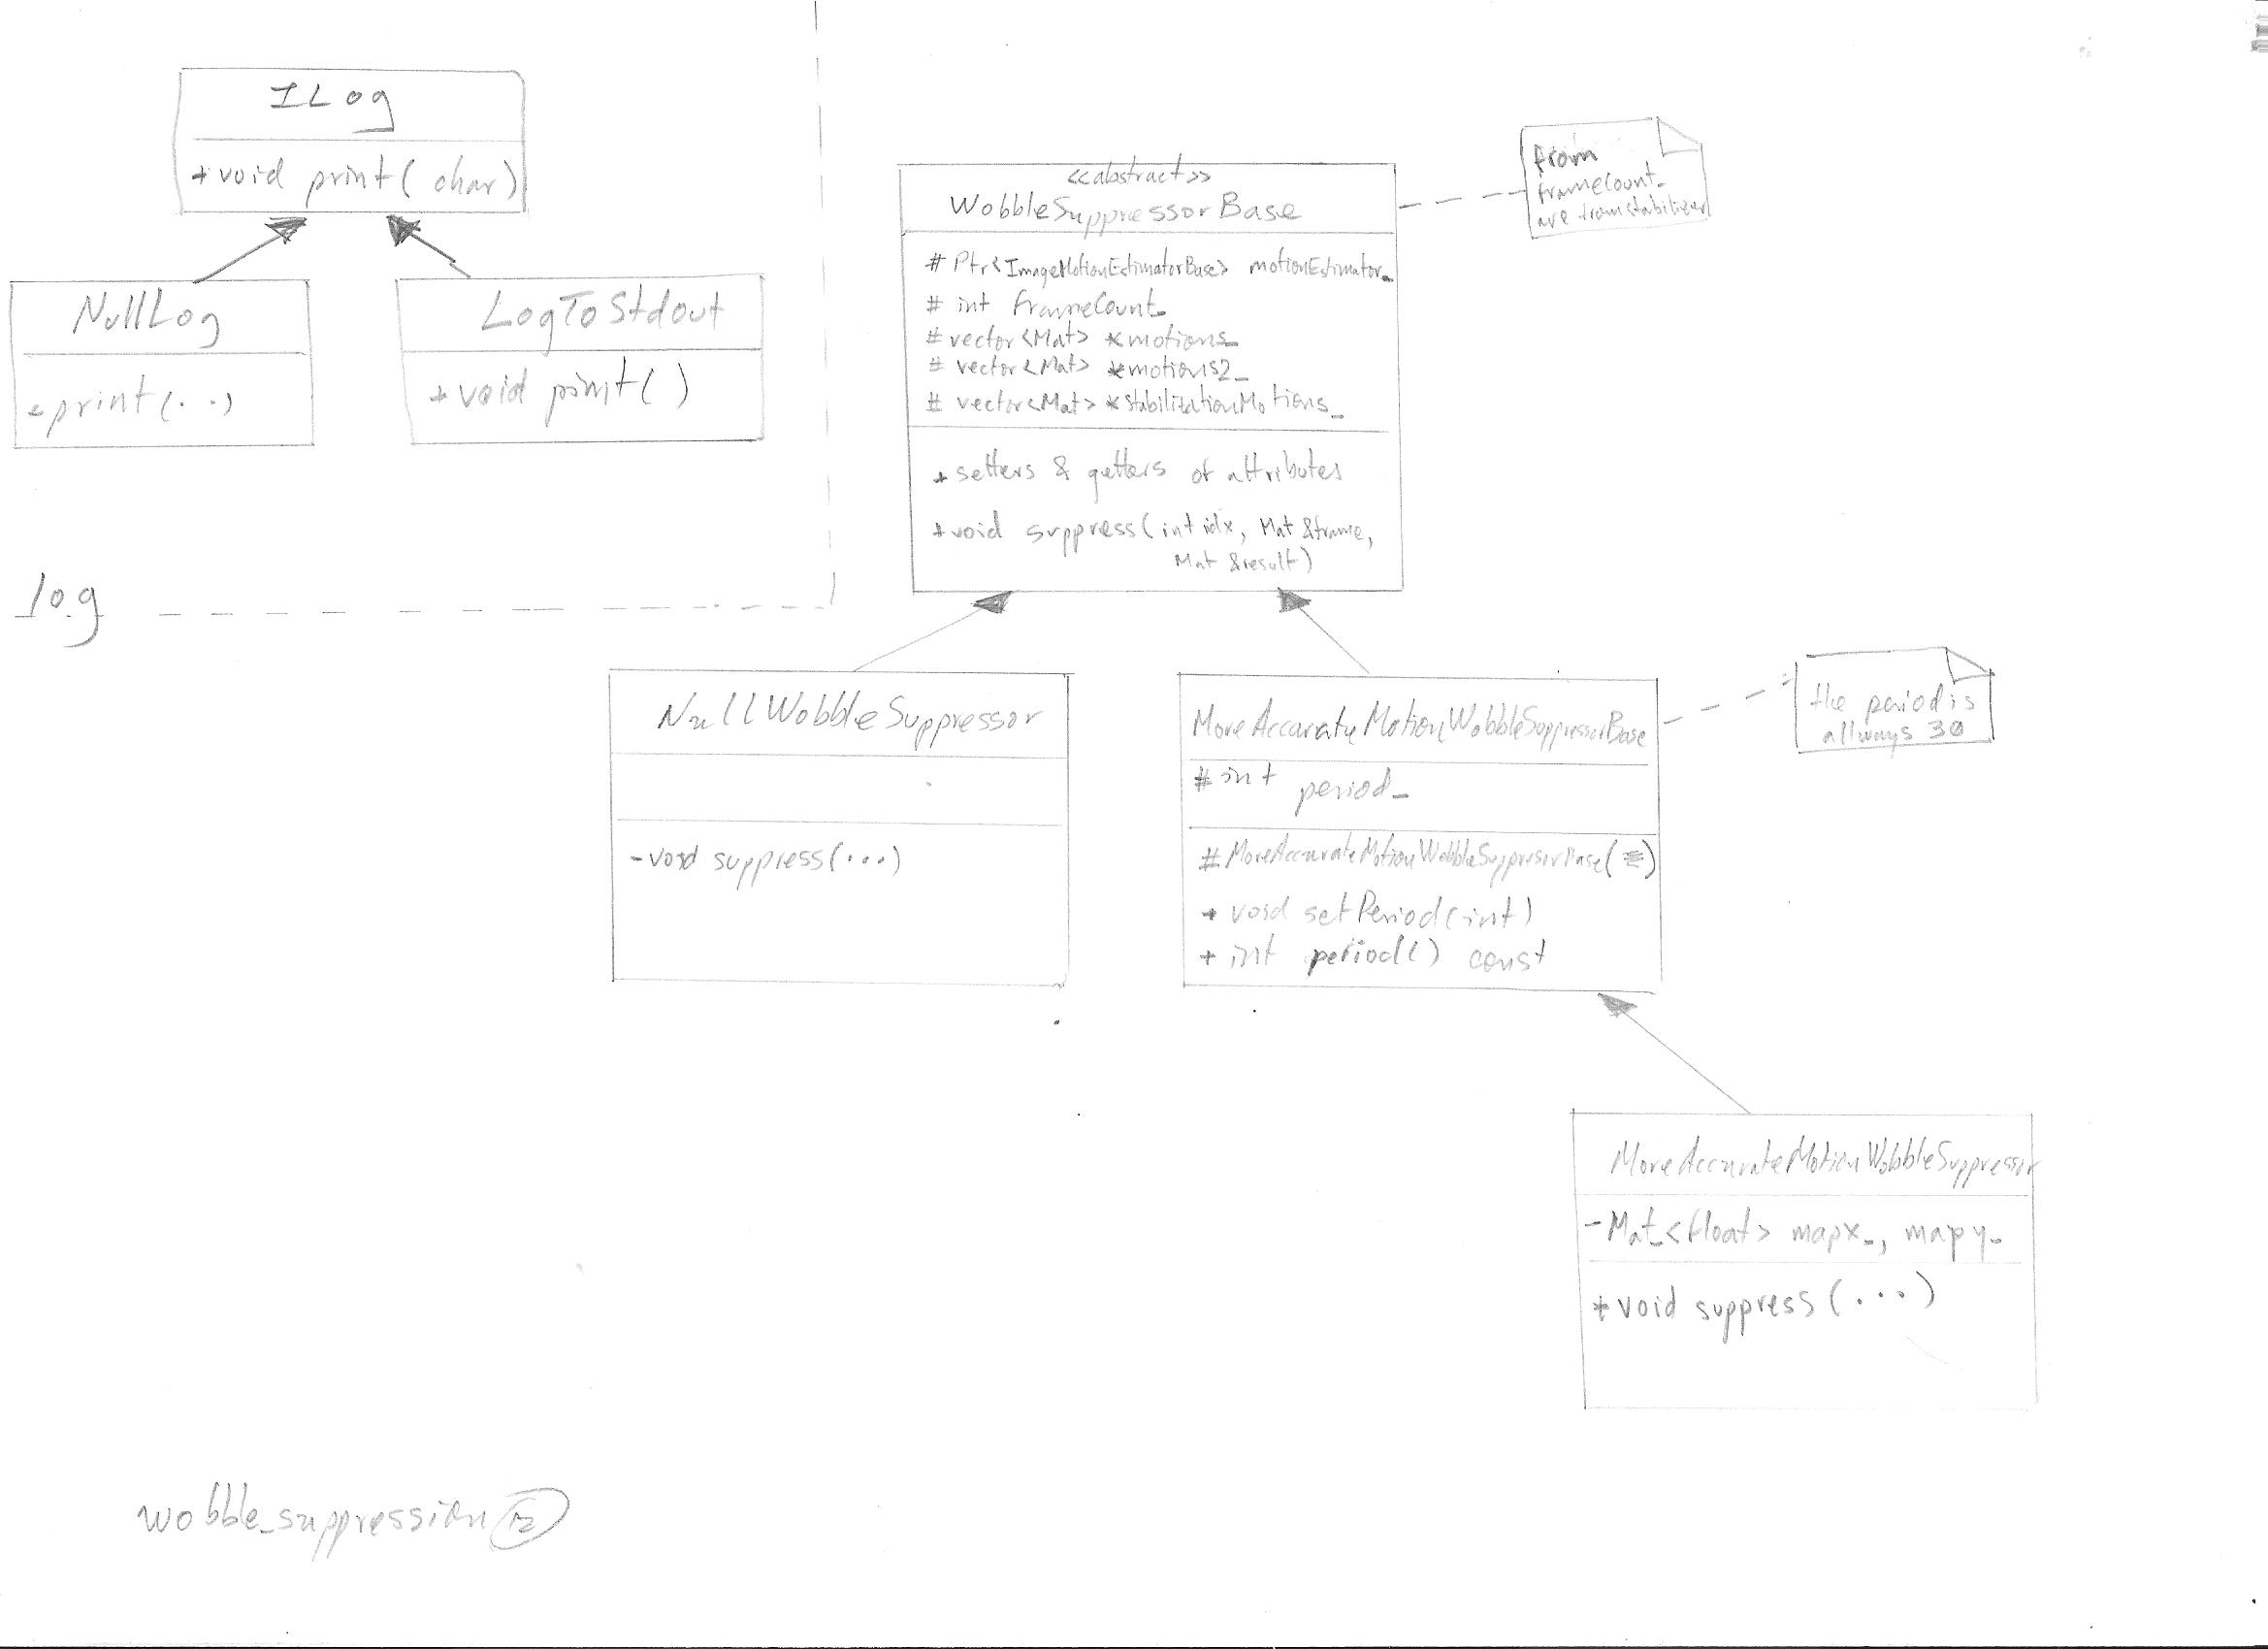 ILog
+void print(char)
NullLog
+print(...)
LogToStdout
+void print()
log
<<abstract>>
WobbleSuppressorBase
# Ptr<ImageMotionEstimatorBase> motionEstimator_
# int frameCount_
# vector<Mat> *motions_
# vector<Mat> *motions2_
# vector<Mat> *stabilizationMotions_
+setters & getters of attributes
+void suppress(int idx, Mat &frame,
Mat &result)
from
frameCount_
are from stabilizer
NullWobbleSuppressor
-void suppress(...)
MoreAccurateMotionWobbleSuppressorBase
# int period_
#MoreAccurateMotionWobbleSuppresorBase( )
+ void setPeriod(int)
+ int period() const
the period is
allways 30
MoreAccurateMotionWobbleSuppressor
-Mat_<float> mapx_, mapy_
+void suppress(...)
wobble_suppression